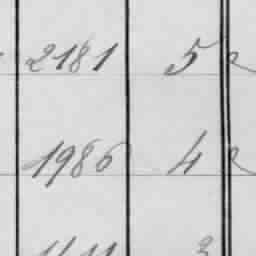 2181 5
1986 4
3